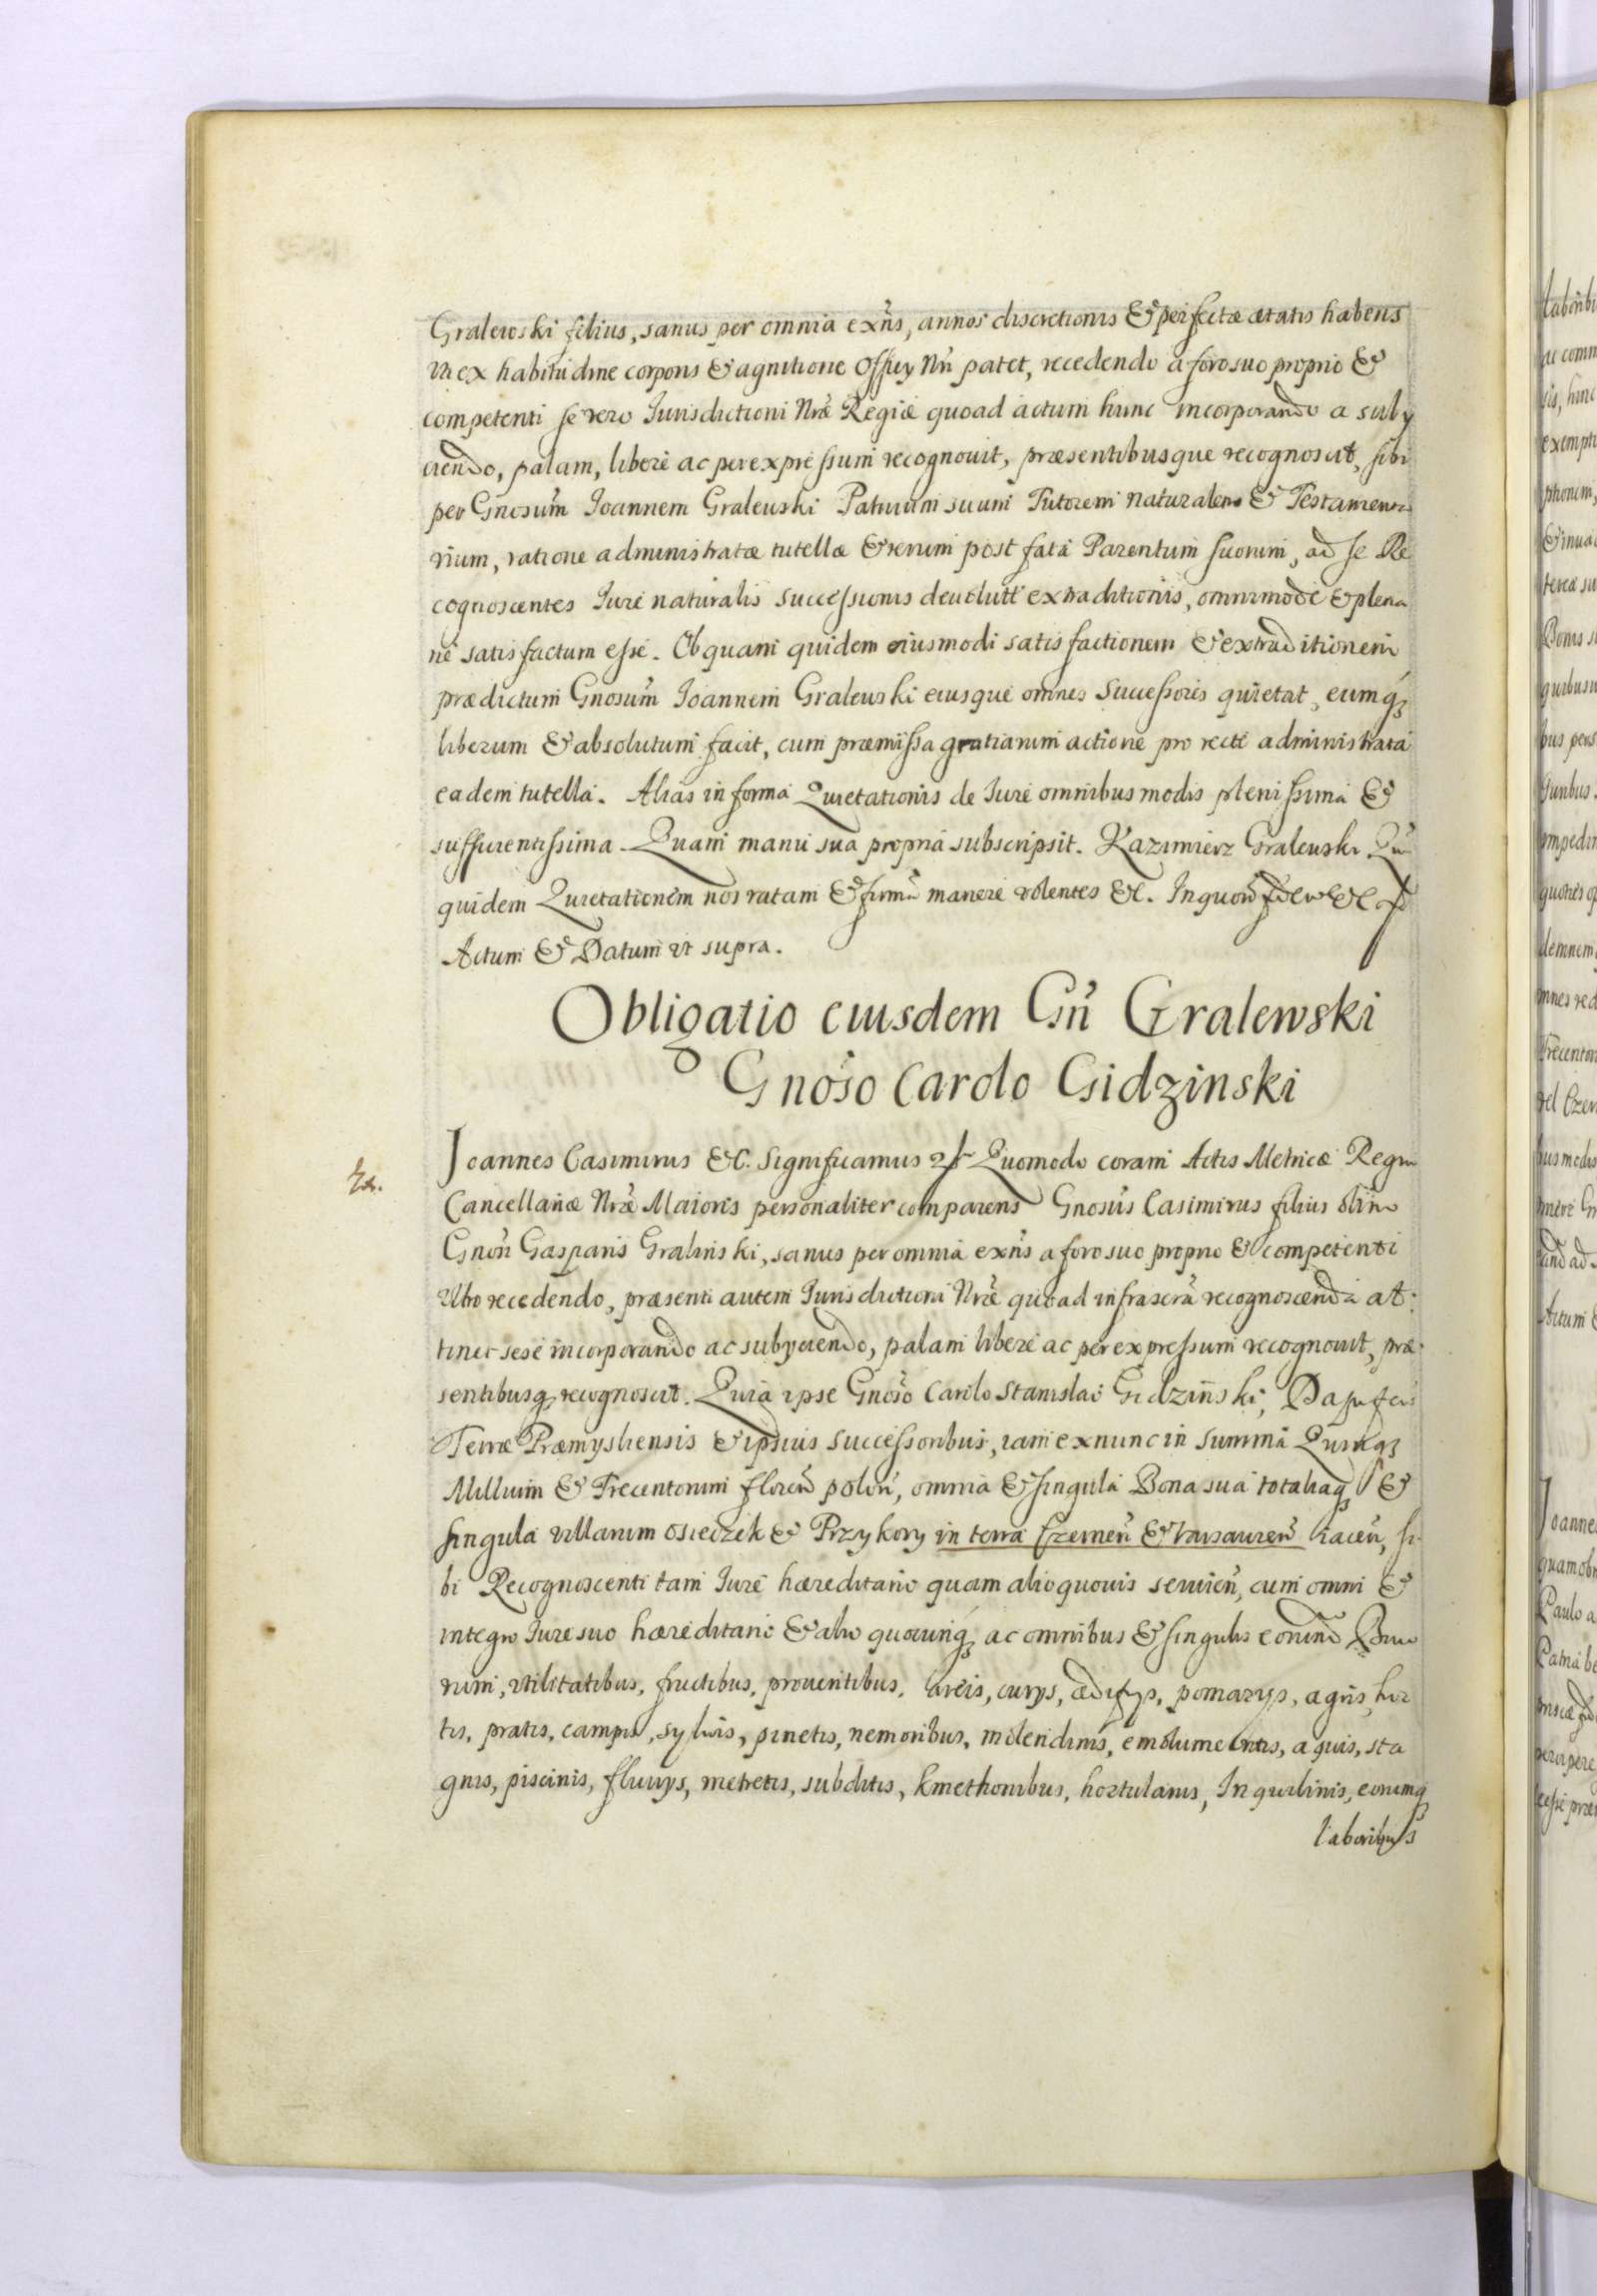 Gralewski filius, sanus per omnia exñs, annos discretionis & perfectæ ætatis habens
vti ex habitudine corporis & agnitione Officij Nri patet, recedendo a foro suo proprio &
competenti se vero Jurisdictioni Nræ Regiæ quoad actum hunc incorporando a subij
ciendo, palam, libere ac per expressum recognouit, præsentibusque recognoscit, sibi
per Gnosum Joannem Gralewski Patruum suum Tutorem naturalem & Testamenta
rium, ratione administratæ tutellæ & rerum post fata Parentum suorum, ad se Re
cognoscentes Jure naturalis successionis deuolutæ extraditionis, omnimode & plena
rie satisfactum esse. Ob quam quidem eiusmodi satisfactionem & extraditionem
prædictum Gnosum Joannem Gralewski eiusque omnes Successores quietat, eumq3
liberum & absolutum facit, cum præmissa gratiarum actione pro recte administrata
eadem tutella. Alias in forma Quietationis de Jure omnibus modis plenissima &
sufficientissima. Quam manu sua propria subscripsit. Kazimierz Gralewski Qu
quidem Quietationem nos ratam & firmã manere volentes &c. In quorũ fidem &c
Actum & Datum vt supra.
Obligatio eiusdem Gñ Gralewski
Gnoso Carolo Gidzinski
Joannes Casimirus &c. Significamus Quomodo coram Actis Metricæ Regni
Cancellariæ Nræ Maioris personaliter comparens Gnosus Casimirus filius olim
Gnosi Gasparis Gralinski, sanus per omnia exñs a foro suo proprio & competenti
vltro recedendo, præsenti autem Jurisdictioni Nræ quoad infrascra recognoscenda at:
tinet sese incorporando ac subijciendo, palam libere ac per expressum recognouit, præ
sentibusq3 recognoscit. Quia ipse Gnoso Carolo Stanislao Gidzinski, Dapifero
Terræ Præmysliensis & ipsius successoribus, iam ex nunc in summa Quinq3
Millium & Trecentorum floreñ poloñ, omnia & singula Bona sua totaliaq3 &
singula villarum Osieczek & Przykory in terra Czerneñ & Varsauieñ iaceñ, si
bi Recognoscenti tam Jure hæreditario quam alio quouis seruieñ, cum omni &
integro Jure suo hæreditario & alio quocunq3 ac omnibus & singulis eorund Bono
rum, vtilitatibus, fructibus, prouentibus, areis, curijs, ædificijs, pomarijs, agris, hor
tis, pratis, campis, syluis, pinetis, nemoribus, molendinis, emolumentis, aquis, sta
gnis, piscinis, fluuijs, metretis, subditis, kmethonibus, hortulanis, Inquilinis, eorumq3
laboribus